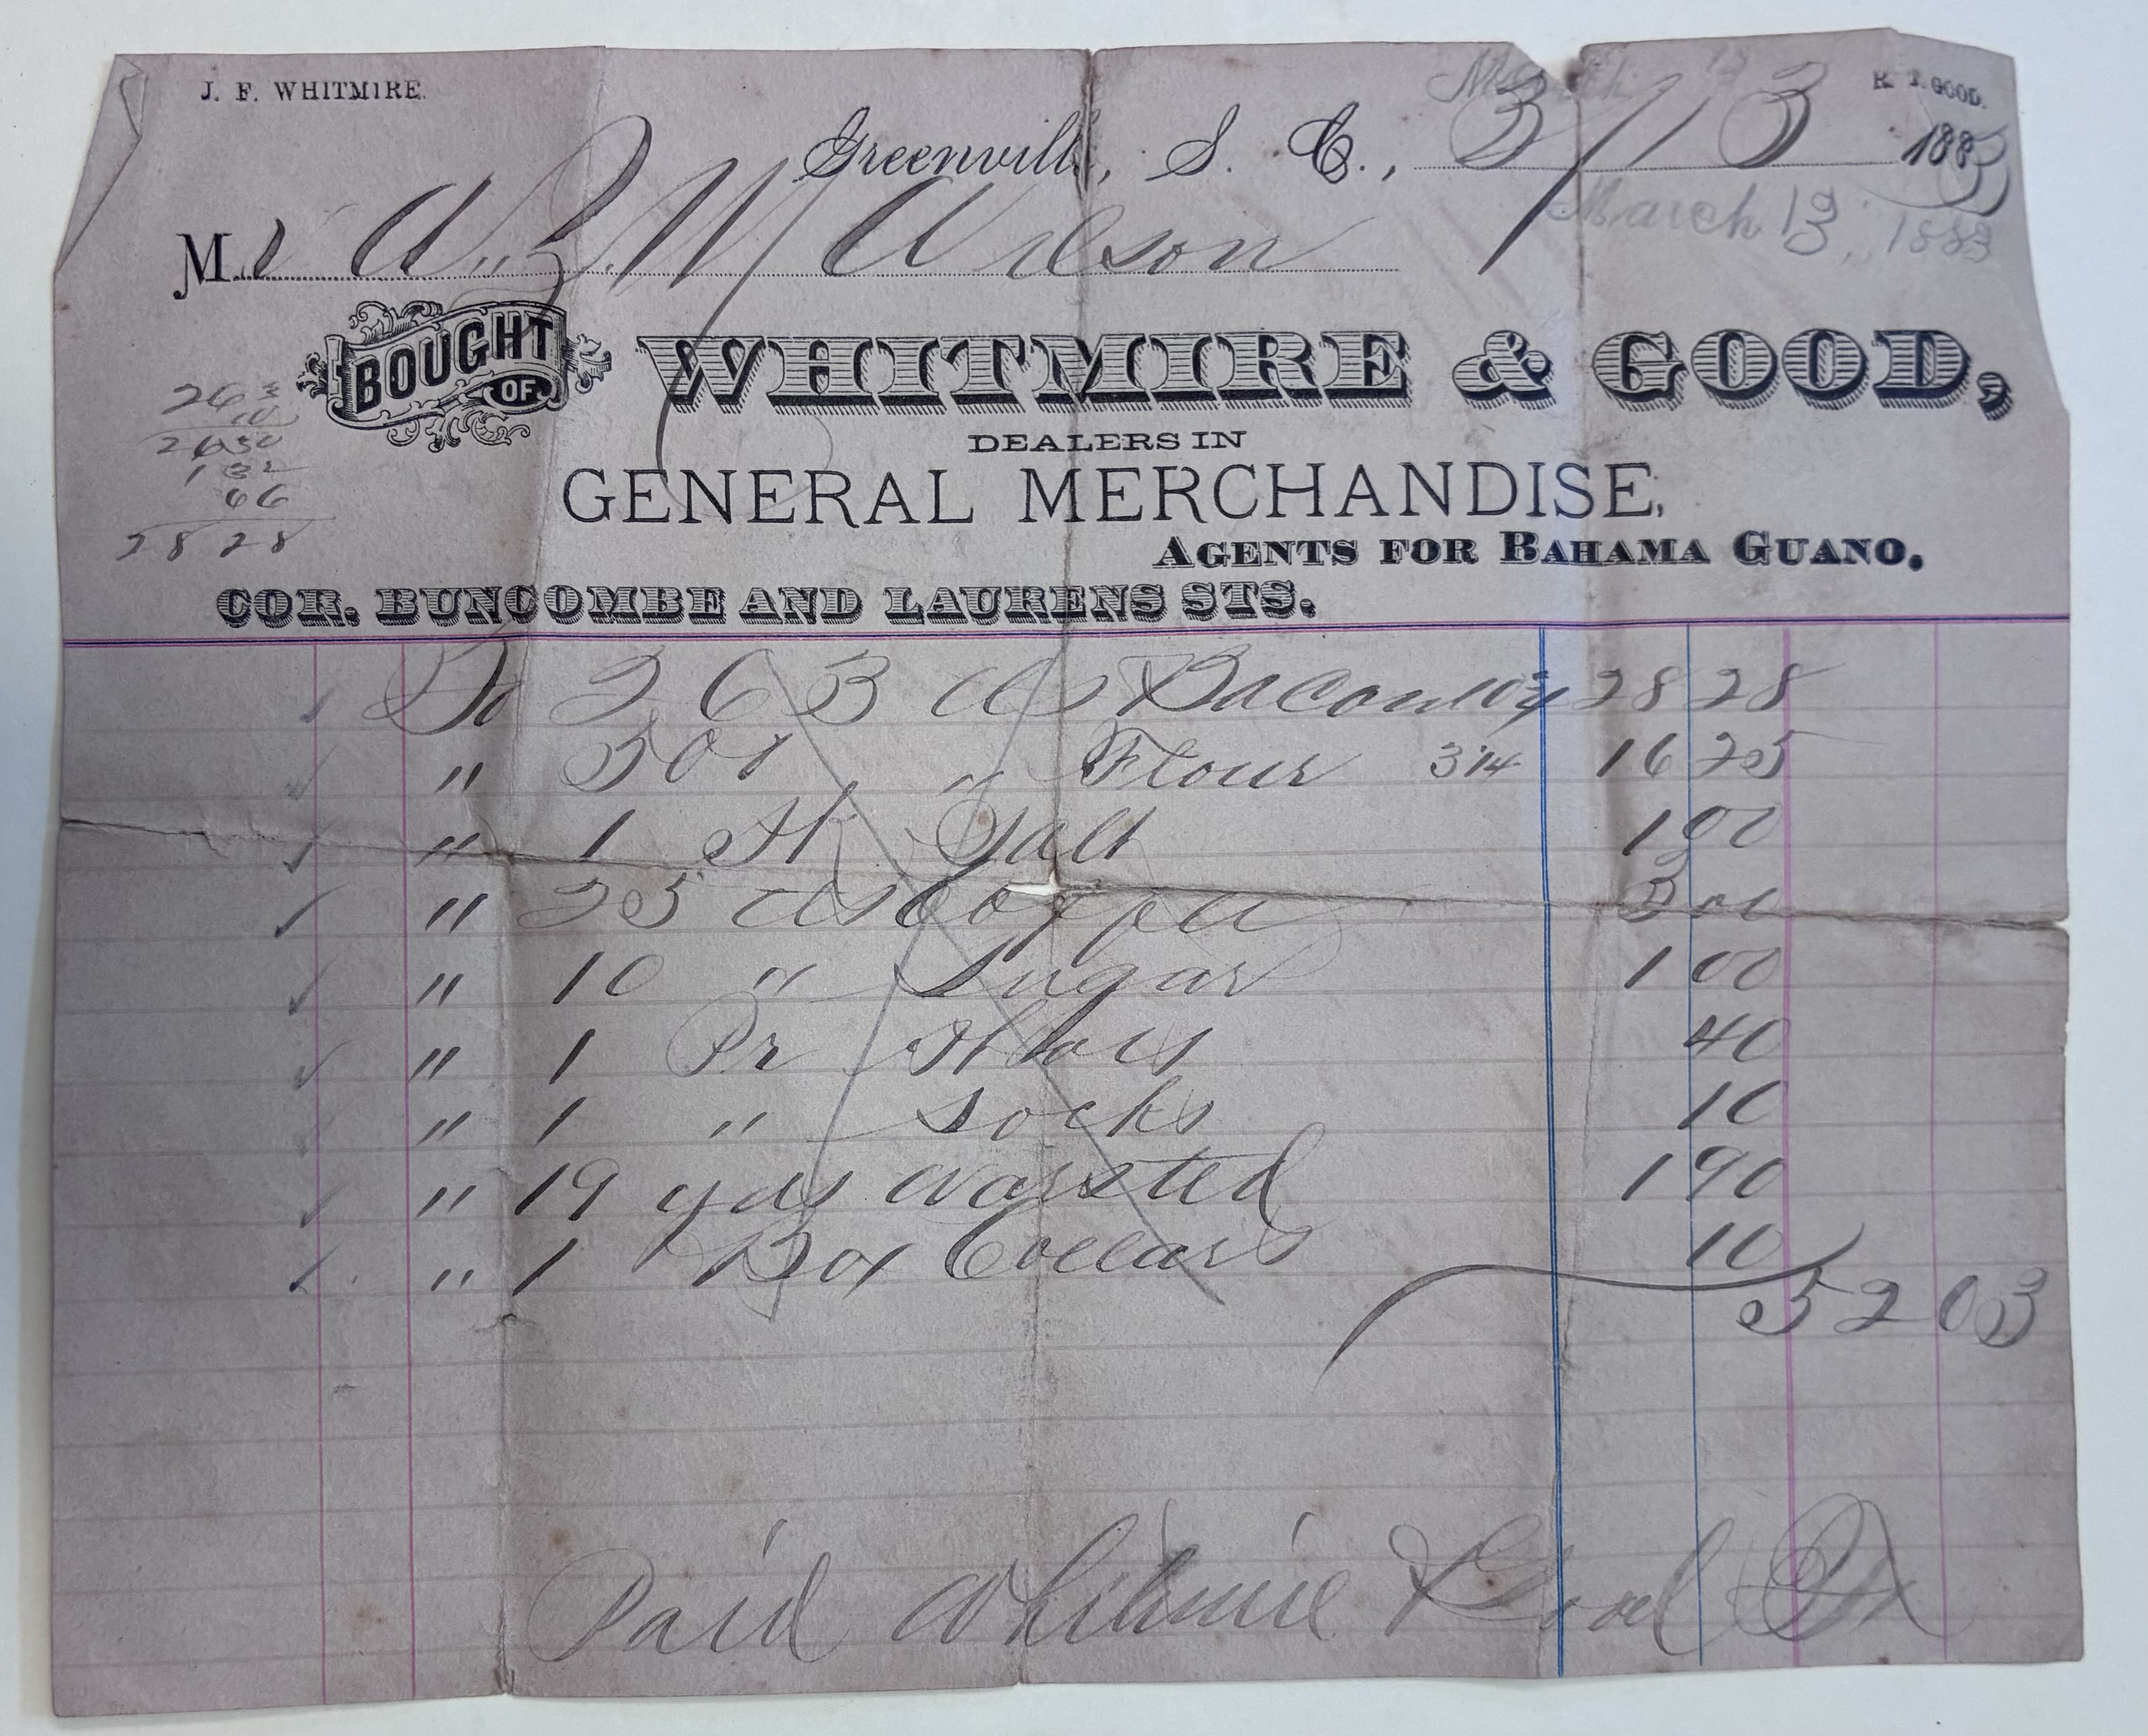 J. F. WHITMIRE.
R. T. GOOD.
Greenville, S. C., 3/13 1883
March 13, 1883
Mr W Wilson
BOUGHT OF WHITMIRE & GOOD,
DEALERS IN
GENERAL MERCHANDISE,
AGENTS FOR BAHAMA GUANO.
COR. BUNCOMBE AND LAURENS STS.
263
10
2630
132
66
2828
263 lbs Bacon 10¾ 28 28
" 500 " Flour 3¼ 16 25
" 1 Sk Salt 1 00
" 25 lbs Coffee 3 00
" 10 " Sugar 1 00
" 1 Pr Shoes 40
" 1 " Socks 10
" 19 yds Worsted 1 90
" 1 Box Collars 10
52 03
Paid Whitmire & Good